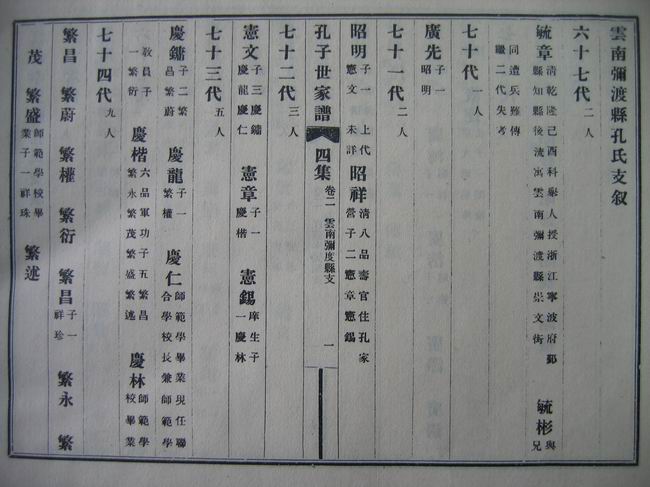 雲南彌渡縣孔氏支叙
六十七代 二人
毓章 清乾隆己酉科舉人授浙江寧波府鄞縣知縣後流寓雲南彌渡縣崇文街 毓彬 與兄同遭兵難傳繼二代失考
七十代 一人
廣先 子一昭明
七十一代 二人
昭明 子一憲文 上代未詳 昭祥 清八品壽官住孔家營子二憲章憲錫
孔子世家譜 四集 卷二 雲南彌度縣支 一
七十二代 三人
憲文 子三慶鏽慶龍慶仁 憲章 子一慶楷 憲錫 庠生子一慶林
七十三代 五人
慶鏞 子二繁昌繁蔚 慶龍 子一繁權 慶仁 師範學畢業現任聯合學校長兼師範學
教員子一繁衍 慶楷 六品軍功子五繁昌繁永繁茂繁盛繁述 慶林 師範學校畢業
七十四代 九人
繁昌 繁蔚 繁權 繁衍 繁昌 子一祥珍 繁永 繁
茂 繁盛 師範學校畢業子一祥珠 繁述